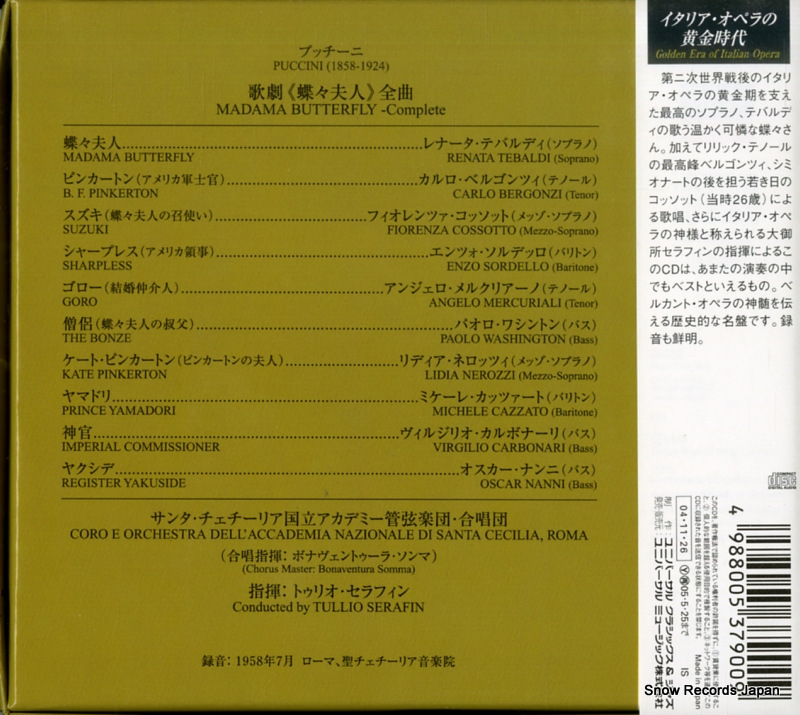 プッチーニ
PUCCINI (1858-1924)
歌劇《蝶々夫人》全曲
MADAMA BUTTERFLY -Complete
蝶々夫人……レナータ・テバルディ(ソプラノ)
MADAMA BUTTERFLY RENATA TEBALDI (Soprano)
ピンカートン(アメリカ軍士官)……カルロ・ベルゴンツィ(テノール)
B. F. PINKERTON CARLO BERGONZI (Tenor)
スズキ(蝶々夫人の召使い)……フィオレンツァ・コッソット(メッゾ・ソプラノ)
SUZUKI FIORENZA COSSOTTO (Mezzo-Soprano)
シャープレス(アメリカ領事)……エンツォ・ソルデッロ(バリトン)
SHARPLESS ENZO SORDELLO (Baritone)
ゴロー(結婚仲介人)……アンジェロ・メルクリアーノ(テノール)
GORO ANGELO MERCURIALI (Tenor)
僧侶(蝶々夫人の叔父)……パオロ・ワシントン(バス)
THE BONZE PAOLO WASHINGTON (Bass)
ケート・ピンカートン(ピンカートンの夫人)……リディア・ネロッツィ(メッゾ・ソプラノ)
KATE PINKERTON LIDIA NEROZZI (Mezzo-Soprano)
ヤマドリ……ミケーレ・カッツァート(バリトン)
PRINCE YAMADORI MICHELE CAZZATO (Baritone)
神官……ヴィルジリオ・カルボナーリ(バス)
IMPERIAL COMMISSIONER VIRGILIO CARBONARI (Bass)
ヤクシデ……オスカー・ナンニ(バス)
REGISTER YAKUSIDE OSCAR NANNI (Bass)
サンタ・チェチーリア国立アカデミー管弦楽団・合唱団
CORO E ORCHESTRA DELL'ACCADEMIA NAZIONALE DI SANTA CECILIA, ROMA
(合唱指揮:ボナヴェントゥーラ・ソンマ)
(Chorus Master: Bonaventura Somma)
指揮:トゥリオ・セラフィン
Conducted by TULLIO SERAFIN
録音:1958年7月 ローマ、聖チェチーリア音楽院
イタリア・オペラの
黄金時代
Golden Era of Italian Opera
第二次世界戦後のイタリ
ア・オペラの黄金期を支え
た最高のソプラノ、テバルデ
ィの歌う温かく可憐な蝶々さ
ん。加えてリリック・テノール
の最高峰ベルゴンツィ、シミ
オナートの後を担う若き日の
コッソット(当時26歳)によ
る歌唱、さらにイタリア・オペ
ラの神様と称えられる大御
所セラフィンの指揮によるこ
のCDは、あまたの演奏の中
でもベストといえるもの。ベ
ルカント・オペラの神髄を伝
える歴史的な名盤です。録
音も鮮明。
COMPACT
disc
DIGITAL AUDIO
Made in Japan
04・11・26
05・5・25まで
IS
制作:ユニバーサル クラシックス&ジャズ
発売・販売元 ユニバーサル ミュージック株式会社
4 988005 379009
Snow Records Japan